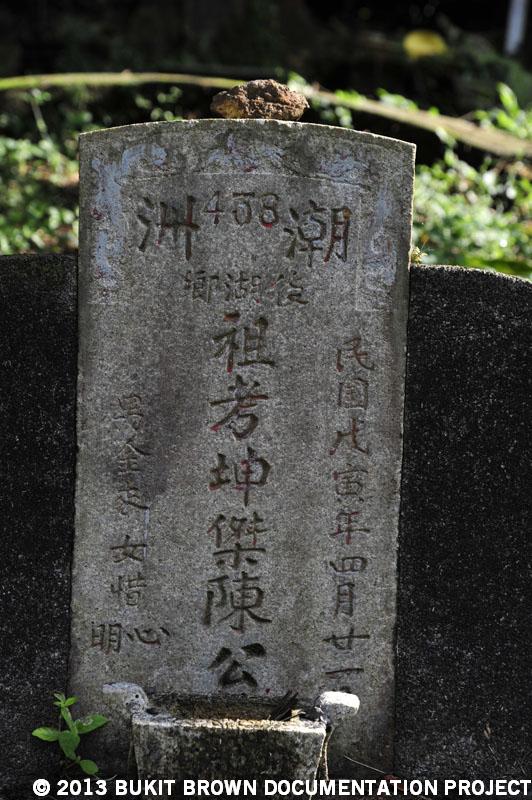 潮 438 洲
後湖鄉
民國戊寅年四月廿一
祖考坤傑陳公
男金 女惜
心明
© 2013 BUKIT BROWN DOCUMENTATION PROJECT